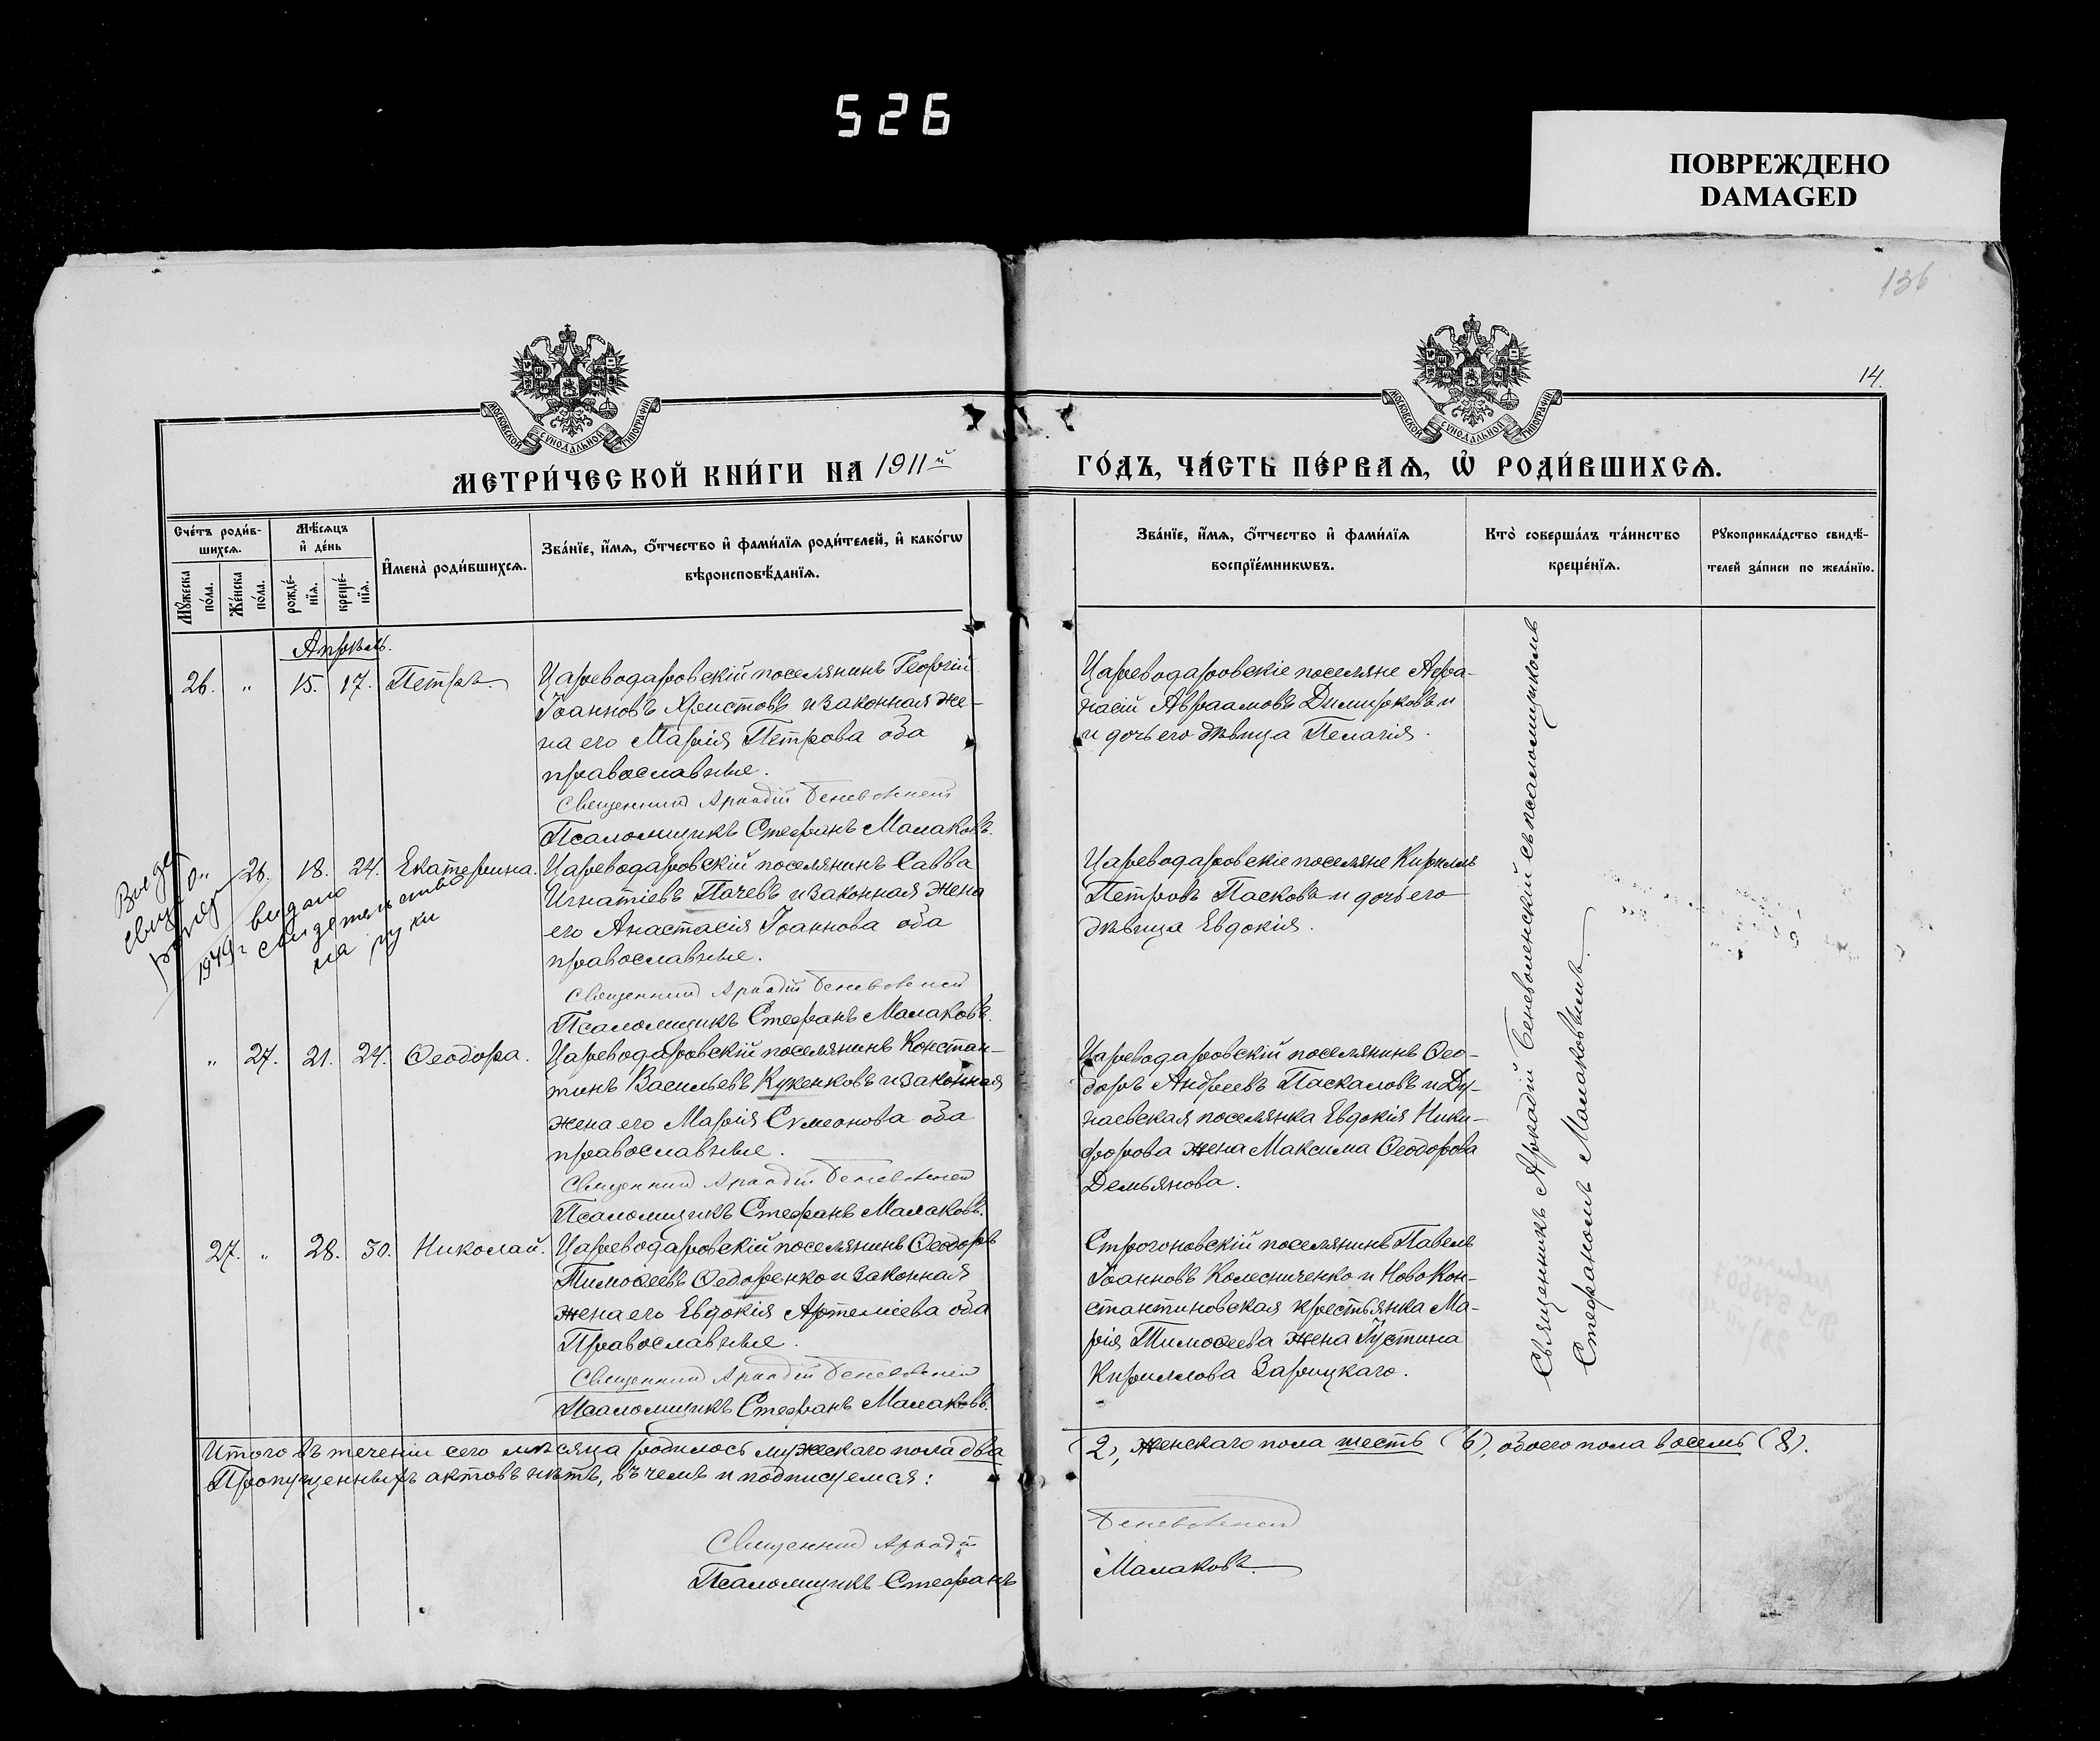 526
ПОВРЕЖДЕНО
DAMAGED
136
14.
МОСКОВСКОЙ СѴНОДАЛЬНОЙ ТИПОГРАФІИ
МОСКОВСКОЙ СѴНОДАЛЬНОЙ ТИПОГРАФІИ
МЕТРИ́ЧЕСКОЙ КНИ́ГИ НА 1911й ГО́ДЪ, ЧА́СТЬ ПЕ́РВАѦ, Ѡ РОДИ́ВШИХСѦ.
Сче́тъ роди́в-
шихсѧ.
Мꙋ́жеска
по́ла.
Же́нска
по́ла.
Мѣ́сѧцъ
и҆ де́нь
рожде́-
нїѧ.
креще́-
нїѧ.
И҆мена̀ роди́вшихсѧ.
Зва́нїе, и҆́мѧ, ѻ҆́тчество и҆ фами́лїѧ роди́телей, и҆ како́гѡ
вѣроисповѣ́данїѧ.
Зва́нїе, и҆́мѧ, ѻ҆́тчество и҆ фами́лїѧ
воспрїе́мникѡвъ.
Кто̀ соверша́лъ та́инство
креще́нїѧ.
Рꙋкоприкла́дство свидѣ́-
телей за́писи по жела́нїю.
Апрѣль.
26. " 15. 17. Петръ.
Цареводаровскій поселянинъ Георгій
Іоанновъ Христовъ и законная же-
на его Марія Петрова оба
православные.
Священникъ Аркадій Беневоленскій
Псаломщикъ Стефанъ Малаковъ.
Цареводаровскіе поселяне Афа-
насій Авраамовъ Димировъ и
и дочь его дѣвица Пелагія.
" 26. 18. 24. Екатерина.
Цареводаровскій поселянинъ Савва
Игнатіевъ Пачевъ и законная жена
его Анастасія Іоаннова оба
православные.
Священникъ Аркадій Беневоленскій
Псаломщикъ Стефанъ Малаковъ.
Цареводаровскіе поселяне Кириллъ
Петровъ Пасковъ и дочь его
дѣвица Евдокія.
1949г выдано
свидетельство
на руки
" 27. 21. 24. Ѳеодора.
Цареводаровскій поселянинъ Констан-
тинъ Васильевъ Кукенковъ и законная
жена его Марія Сѵмеонова оба
православные.
Священникъ Аркадій Беневоленскій
Псаломщикъ Стефанъ Малаковъ.
Цареводаровскій поселянинъ Ѳео-
доръ Андреевъ Паскаловъ и Ду-
наевская поселянка Евдокія Ники-
форова жена Максима Ѳеодорова
Демьянова.
27. " 28. 30. Николай.
Цареводаровскій поселянинъ Ѳеодоръ
Тимоѳеевъ Ѳедоренко и законная
жена его Евдокія Артеміева оба
Православные.
Священникъ Аркадій Беневоленскій
Псаломщикъ Стефанъ Малаковъ.
Строгоновскій поселянинъ Павелъ
Іоанновъ Колесниченко и Новокон-
стантиновская крестьянка Ма-
рія Тимоѳеева жена Іустина
Кириллова Зарицкаго.
Священникъ Аркадій Беневоленскій съ псаломщикомъ
Стефаномъ Малаковымъ.
Итого въ теченіи сего мѣсяца родилось мужескаго пола два (2), женскаго пола шесть (6), обоего пола восемь (8).
Пропущенныхъ актовъ нѣтъ, въ чемъ и подписуемся:
Священникъ Аркадій Беневоленскій
Псаломщикъ Стефанъ Малаковъ.